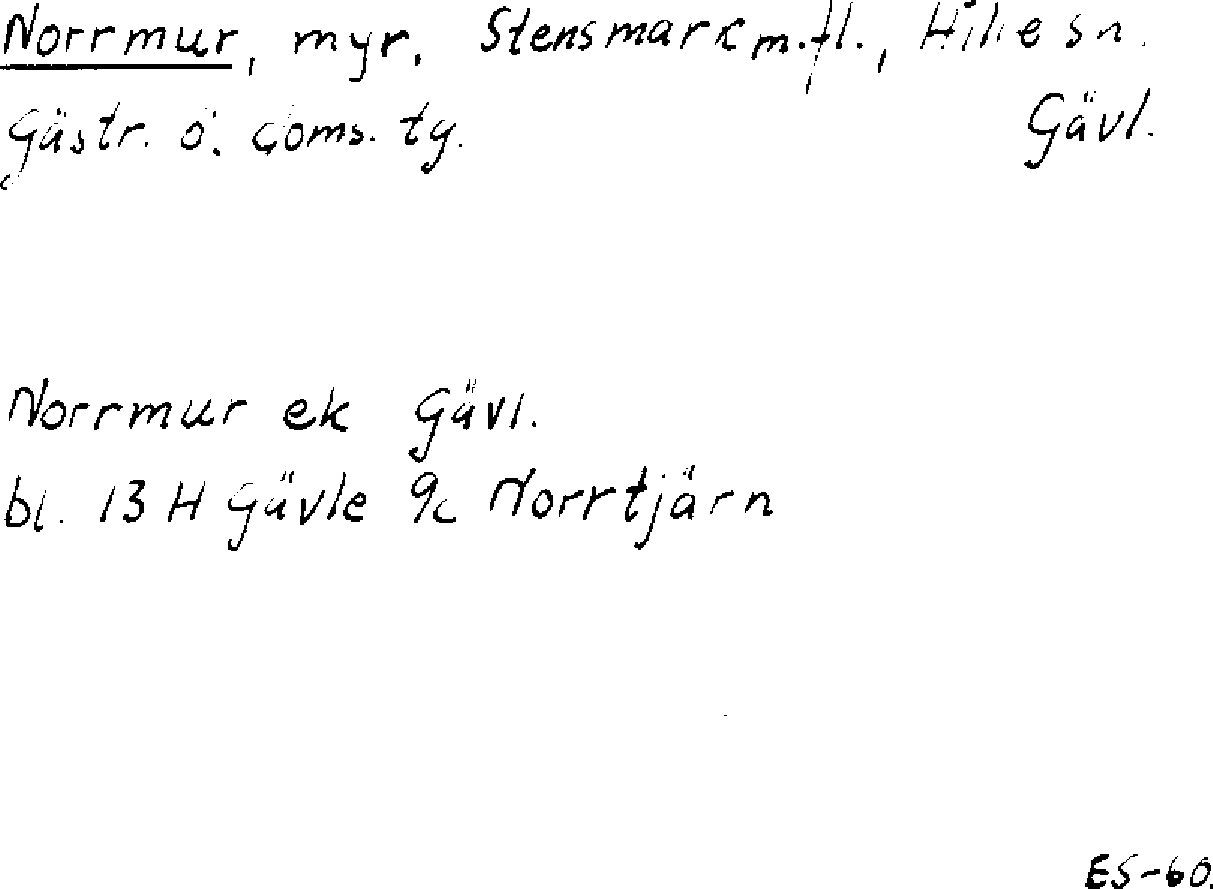 Norrmur, myr, Stensmark m.fl., Hille sn.
Gästr. ö. doms. tg. Gävl.
Norrmur ek Gävl.
bl. 13 H Gävle 9c Norrtjärn
ES-60.